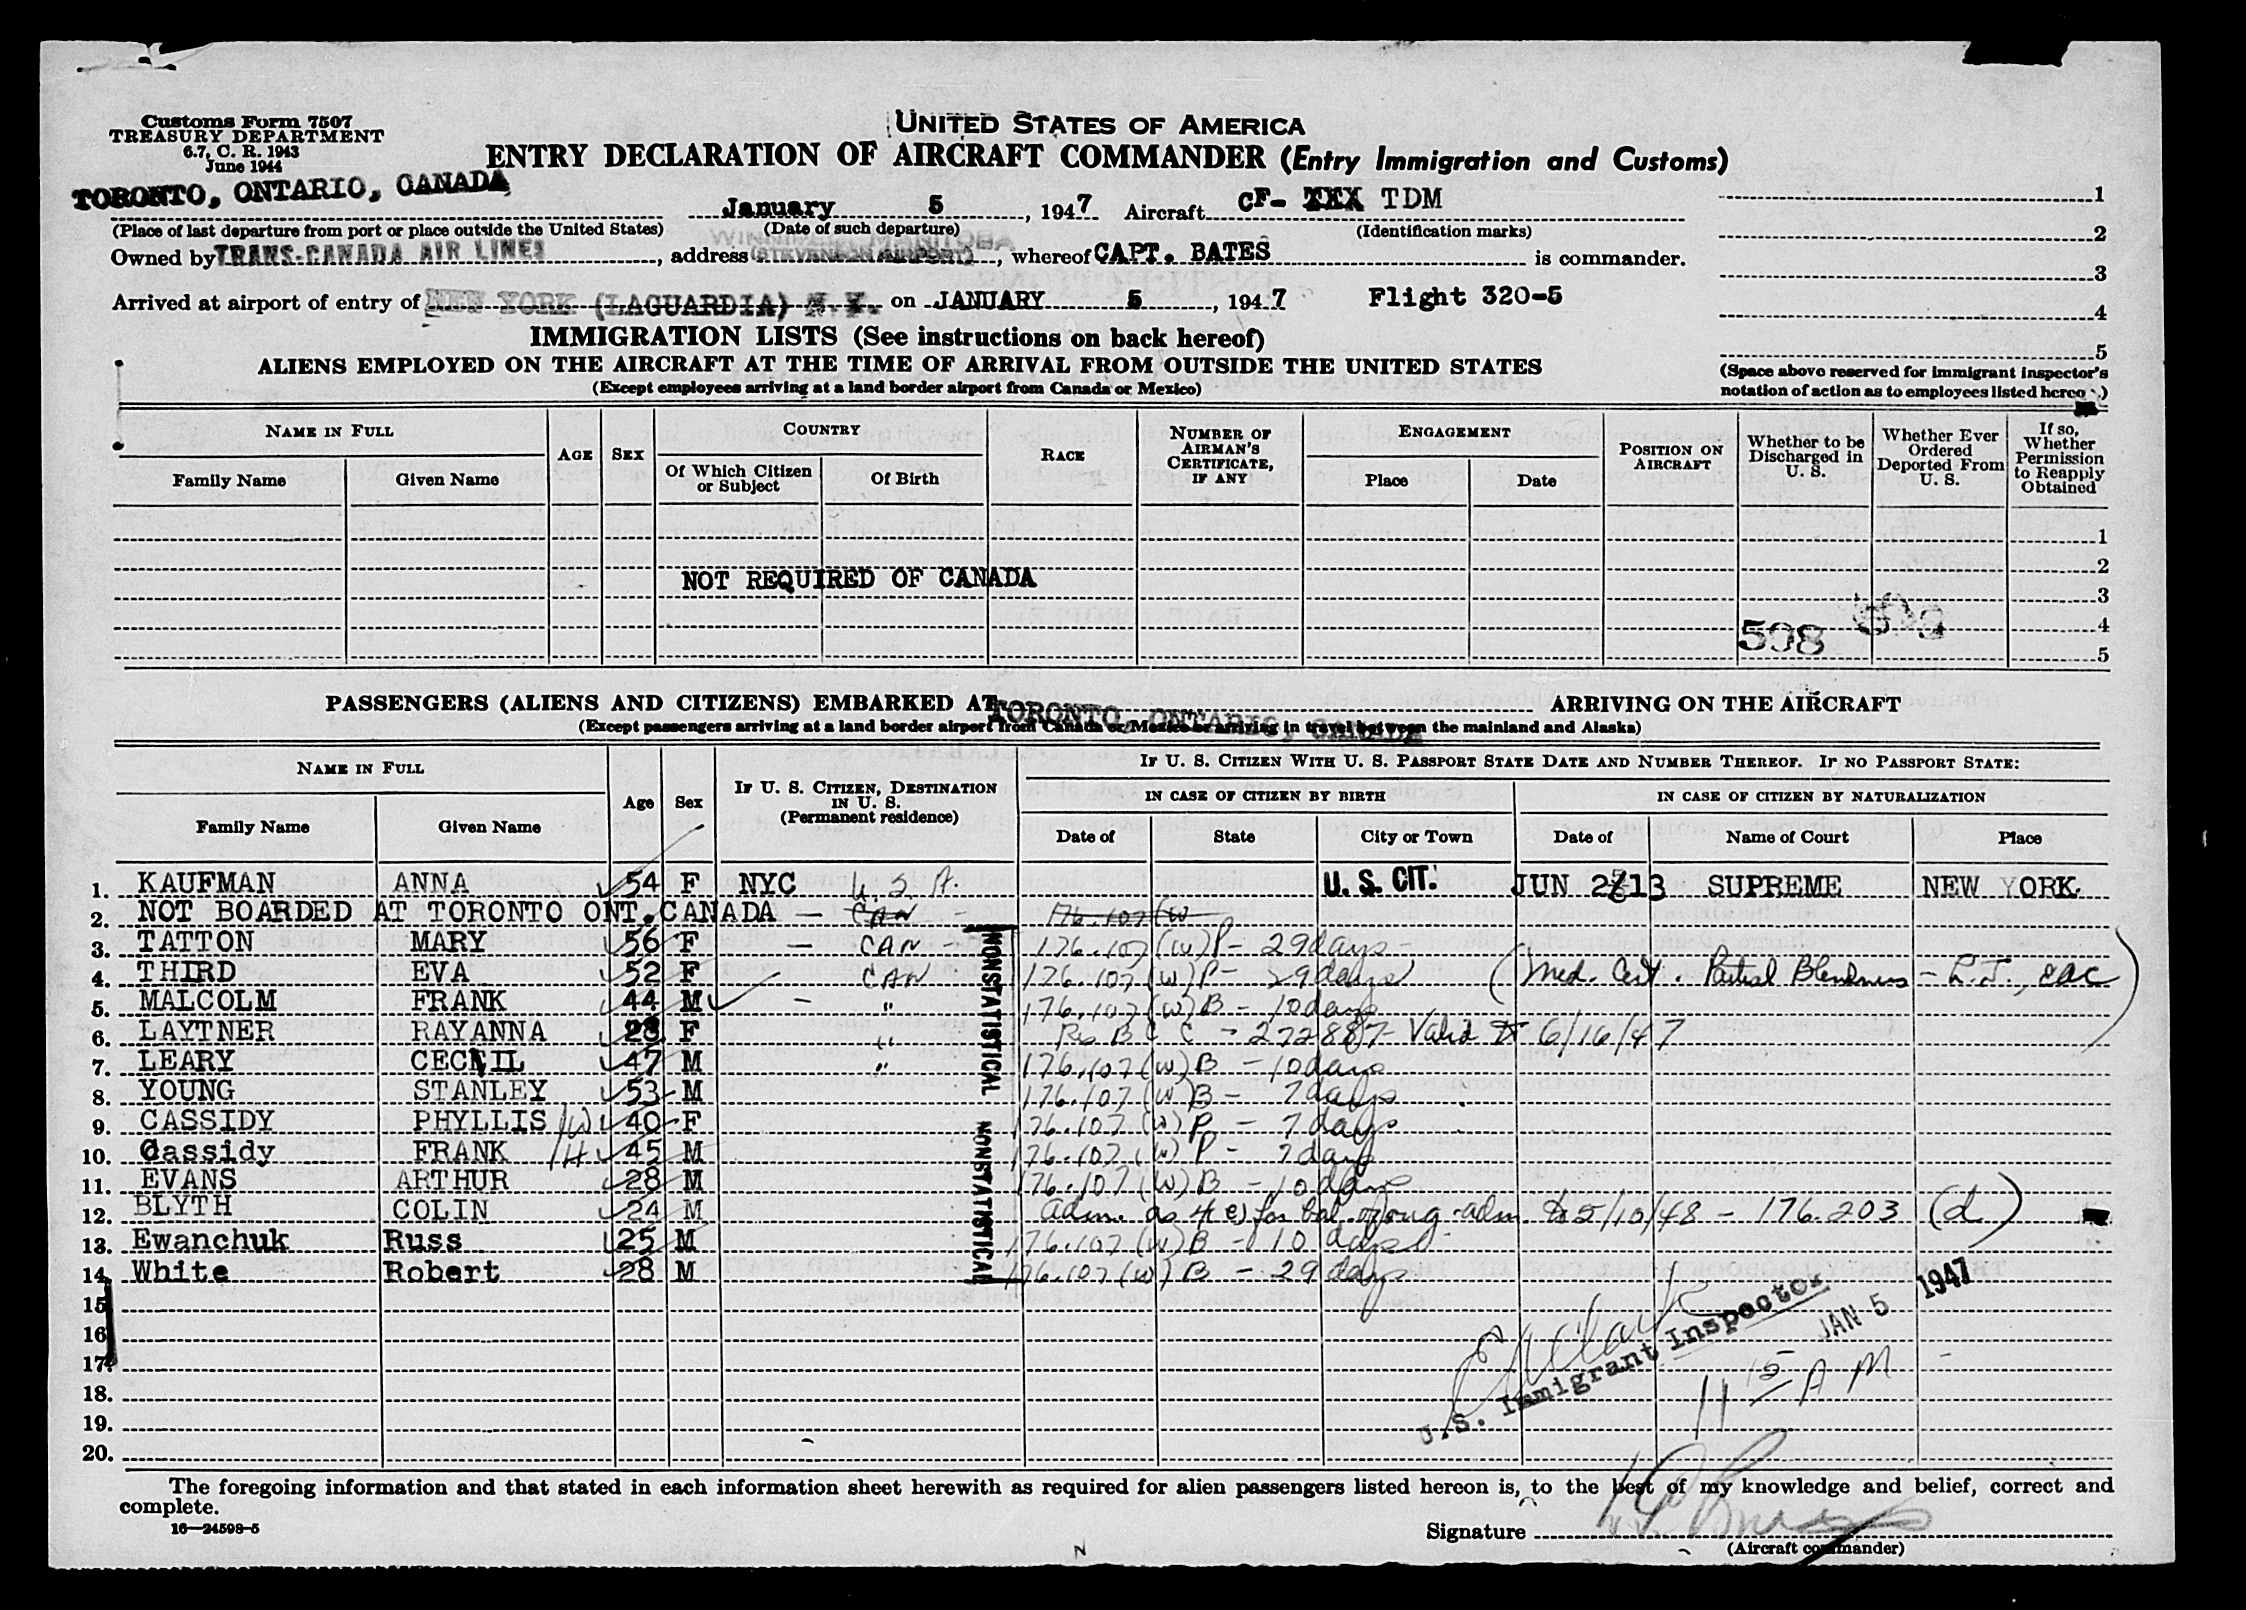 Customs Form 7507
TREASURY DEPARTMENT
6.7, C. R. 1943
June 1944
UNITED STATES OF AMERICA
ENTRY DECLARATION OF AIRCRAFT COMMANDER (Entry Immigration and Customs)
TORONTO, ONTARIO, CANADA January 5, 1947 Aircraft CF- TDM 1
(Place of last departure from port or place outside the United States) (Date of such departure) (Identification marks) 2
Owned by TRANS-CANADA AIR LINES, address WINNIPEG MANITOBA (STEVENSON AIRPORT), whereof CAPT. BATES is commander. 3
Arrived at airport of entry of NEW YORK (LAGUARDIA) N. Y. on JANUARY 5, 1947 Flight 320-5 4
IMMIGRATION LISTS (See instructions on back hereof) 5
ALIENS EMPLOYED ON THE AIRCRAFT AT THE TIME OF ARRIVAL FROM OUTSIDE THE UNITED STATES
(Except employees arriving at a land border airport from Canada or Mexico)
(Space above reserved for immigrant inspector's
notation of action as to employees listed hereon.)
NAME IN FULL AGE SEX COUNTRY RACE NUMBER OF AIRMAN'S CERTIFICATE, IF ANY ENGAGEMENT POSITION ON AIRCRAFT Whether to be Discharged in U. S. Whether Ever Ordered Deported From U. S. If so, Whether Permission to Reapply Obtained
Family Name Given Name Of Which Citizen or Subject Of Birth Place Date
1
2
NOT REQUIRED OF CANADA
3
4
598
5
PASSENGERS (ALIENS AND CITIZENS) EMBARKED AT TORONTO, ONTARIO, CANADA ARRIVING ON THE AIRCRAFT
(Except passengers arriving at a land border airport from Canada or Mexico or arriving in travel between the mainland and Alaska)
NAME IN FULL Age Sex IF U. S. CITIZEN, DESTINATION IN U. S. (Permanent residence) IF U. S. CITIZEN WITH U. S. PASSPORT STATE DATE AND NUMBER THEREOF. IF NO PASSPORT STATE:
IN CASE OF CITIZEN BY BIRTH IN CASE OF CITIZEN BY NATURALIZATION
Family Name Given Name Date of State City or Town Date of Name of Court Place
1. KAUFMAN ANNA 54 F NYC U.S.A. U. S. CIT. JUN 13 SUPREME NEW YORK
2. NOT BOARDED AT TORONTO ONT. CANADA — CAN - 176.107(w
3. TATTON MARY 56 F — CAN - 176.107(w)P- 29 days -
4. THIRD EVA 52 F - CAN 176.107(w)P- 29 days (Med. Cert. Partial Blindness - L.J., EAC)
5. MALCOLM FRANK 44 M — " 176.107(w)B - 10 days
6. LAYTNER RAYANNA 28 F " Res B C C - 272887- Valid to 6/16/47
7. LEARY CECIL 47 M " 176.107(w)B - 10 days
8. YOUNG STANLEY 53 M 176.107(w)B - 7 days
9. CASSIDY PHYLLIS /W 40 F 176.107(w)P - 7 days
10. Cassidy FRANK /H 45 M 176.107(w)P - 7 days
11. EVANS ARTHUR 28 M 176.107(w)B - 10 days
12. BLYTH COLIN 24 M adm. as 4(e) for bal. of orig. adm to 5/10/48 - 176.203 (d)
13. Ewanchuk Russ 25 M 176.107(w)B - 10 days
14. White Robert 28 M 176.107(w)B - 29 days
NONSTATISTICAL
NONSTATISTICAL
15.
16.
17.
18.
19.
20.
U.S. Immigrant Inspector
JAN 5 1947
11 15 A M
The foregoing information and that stated in each information sheet herewith as required for alien passengers listed hereon is, to the best of my knowledge and belief, correct and
complete.
16—24598-5
Signature
(Aircraft commander)